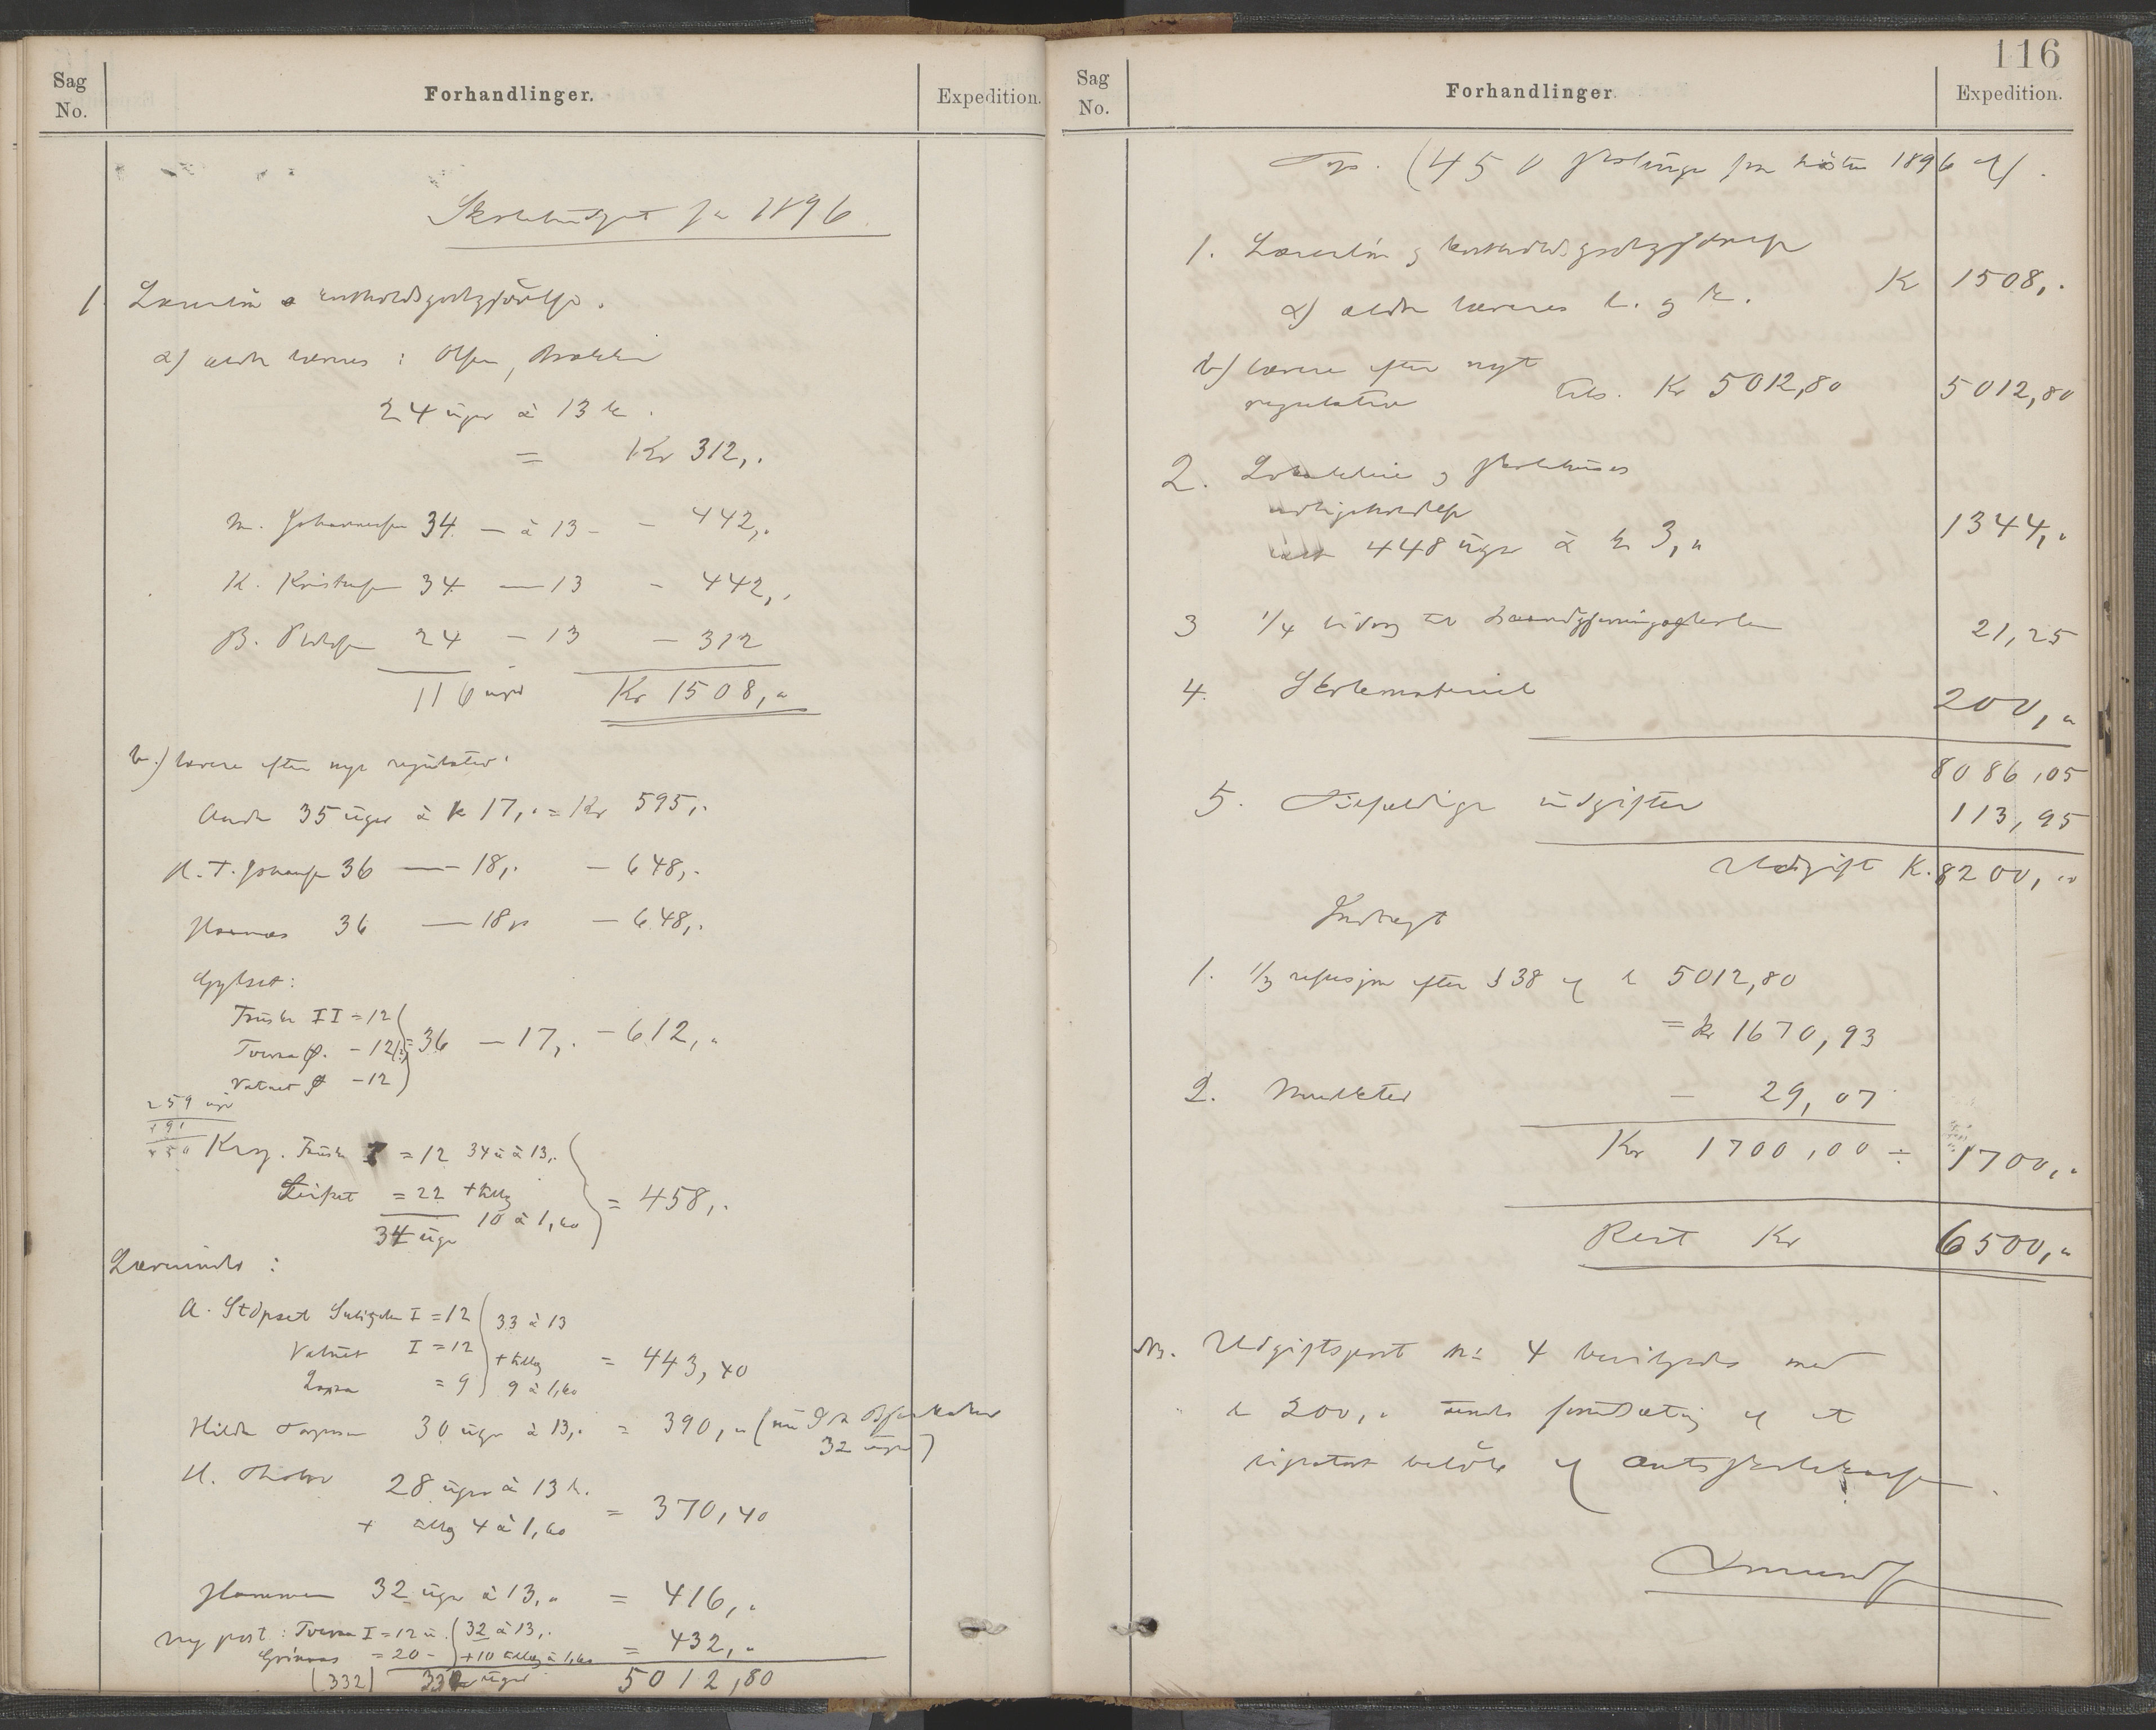 Sag
No.
Forhandlinger.
Expedition.
Skolebudget for 1896.
1. Lærerløn & kostholdsgodtgjørelse.
a) ældre læreres: Olsen,
24 uger à 13 kr.
= Kr 312,.
M. Johannesen 34 — à 13 - - 442,.
K. Kristensen 34 — 13 - 442,.
B. 24 - 13 - 312
116 uger Kr 1508,"
b.) lærere efter nyt regulativ.
35 uger à kr 17,. = Kr 595,.
H. T. Johansen 36 — 18,. - 648,.
36 — 18," - 648,.
II = 12
Tverraa - 12 = 36 - 17,. - 612,"
Vatnet - 12
259 uger
191
450
Krog. I = 12 34 u à 13,.
Leifset = 22 + tillæg
10 à 1,60 = 458,.
34 uger
Lærerinder:
A. Støpset I = 12 33 à 13
Vatnet I = 12 + tillæg = 443,40
= 9 9 à 1,60
Hilda 30 uger à 13,. = 390,"
32 uger)
28 uger à 13 kr.
= 370,40
+ tillæg 4 à 1,60
32 uger à 13," = 416,.
Ny post: Tverraa I = 12 u. 32 à 13,.
= 20 - + 10 tillæg à 1,60 = 432,"
(332) 332 uger 5012,80
116
Sag
No.
Forhandlinger.
Expedition.
(450 skoleuger fra høsten 1896 af).
1. Lærerløn og kostholdsgodtgjørelse
a) ældre læreres l. og k. Kr 1508,.
b) lærere efter nyt
regulativ tils. Kr 5012,80 5012,80
2. Lokalleie og skolehuses
vedligeholdelse
448 uger à kr 3," 1344,.
3 1/4 bidrag til 21,25
4. Skolemateriel 200,"
8086,05
5. Tilfældige udgifter 113,95
Udgift K. 8200,"
Indtægt
1. 1/3 refusjon efter § 38 af kr 5012,80
= kr 1670,93
2. Mulkter - 29,07
Kr 1700,00 ÷ 1700,"
Rest Kr 6500,"
NB. Udgiftspost No 4 bevilgedes med
kr 200,. under forudsætning af et
lignende beløb af amtsskolekassen.